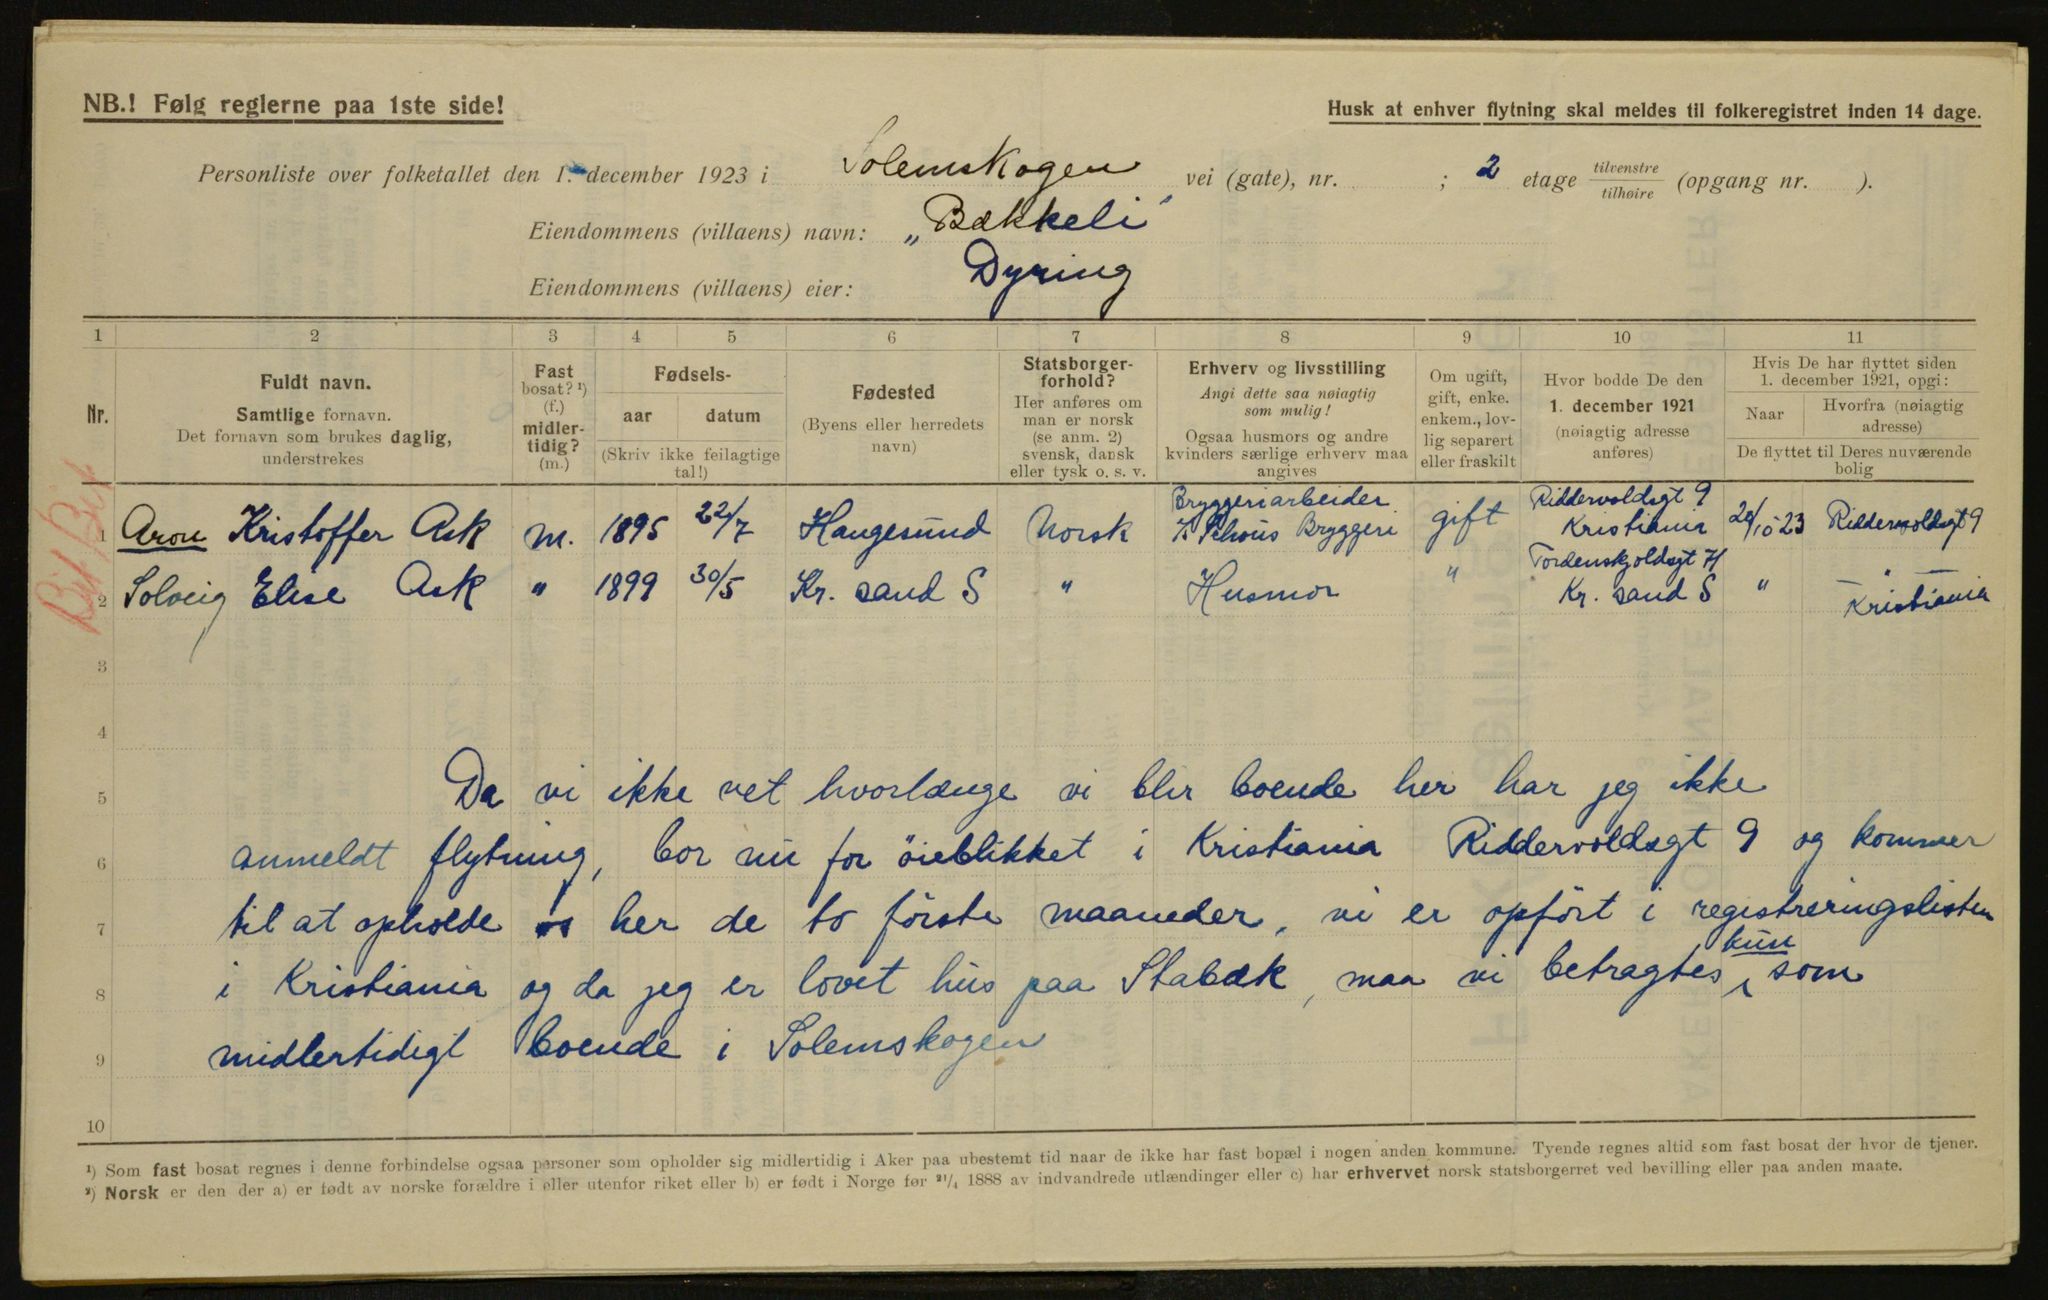 NB.! Følg reglerne paa 1ste side!
Husk at enhver flytning skal meldes til folkeregistret inden 14 dage.
Personliste over folketallet den 1. december 1923 i Solemskogen vei (gate), nr. ; 2 etage tilvenstre / tilhøire (opgang nr. ).
Eiendommens (villaens) navn: „Bækkeli"
Eiendommens (villaens) eier: Dyring
1 2 3 4 5 6 7 8 9 10 11
Nr.
Fuldt navn.
Samtlige fornavn.
Det fornavn som brukes daglig,
understrekes
Fast
bosat? ¹)
(f.)
midler-
tidig?
(m.)
Fødsels-
aar datum
(Skriv ikke feilagtige
tal!)
Fødested
(Byens eller herredets
navn)
Statsborger-
forhold?
Her anføres om
man er norsk
(se anm. 2)
svensk, dansk
eller tysk o. s. v.
Erhverv og livsstilling
Angi dette saa nøiagtig
som mulig!
Ogsaa husmors og andre
kvinders særlige erhverv maa
angives
Om ugift,
gift, enke.
enkem., lov-
lig separert
eller fraskilt
Hvor bodde De den
1. december 1921
(nøiagtig adresse
anføres)
Hvis De har flyttet siden
1. december 1921, opgi:
Naar Hvorfra (nøiagtig
adresse)
De flyttet til Deres nuværende
bolig
1 Aron Kristoffer Ask m. 1895 22/7 Haugesund Norsk Bryggeriarbeider Schous Bryggeri gift Riddervoldsgt 9 Kristiania 20/10 23 Riddervoldsgt 9
2 Solveig Elise Ask " 1899 30/5 Kr. sand S " Husmor " Tordenskjoldsgt Kr. sand S " — " — Kristiania
3
4
5 Da vi ikke vet hvorlænge vi blir boende her har jeg ikke
6 anmeldt flytning, bor nu for öieblikket i Kristiania Riddervoldsgt 9 og kommer
7 til at opholde os her de to förste maaneder, vi er opfört i registreringslisten
8 i Kristiania og da jeg er lovet hus paa Stabæk, maa vi betragtes kun som
9 midlertidigt boende i Solemskogen
10
¹) Som fast bosat regnes i denne forbindelse ogsaa personer som opholder sig midlertidig i Aker paa ubestemt tid naar de ikke har fast bopæl i nogen anden kommune. Tyende regnes altid som fast bosat der hvor de tjener.
²) Norsk er den der a) er født av norske forældre i eller utenfor riket eller b) er født i Norge før ²¹/₄ 1888 av indvandrede utlændinger eller c) har erhvervet norsk statsborgerret ved bevilling eller paa anden maate.